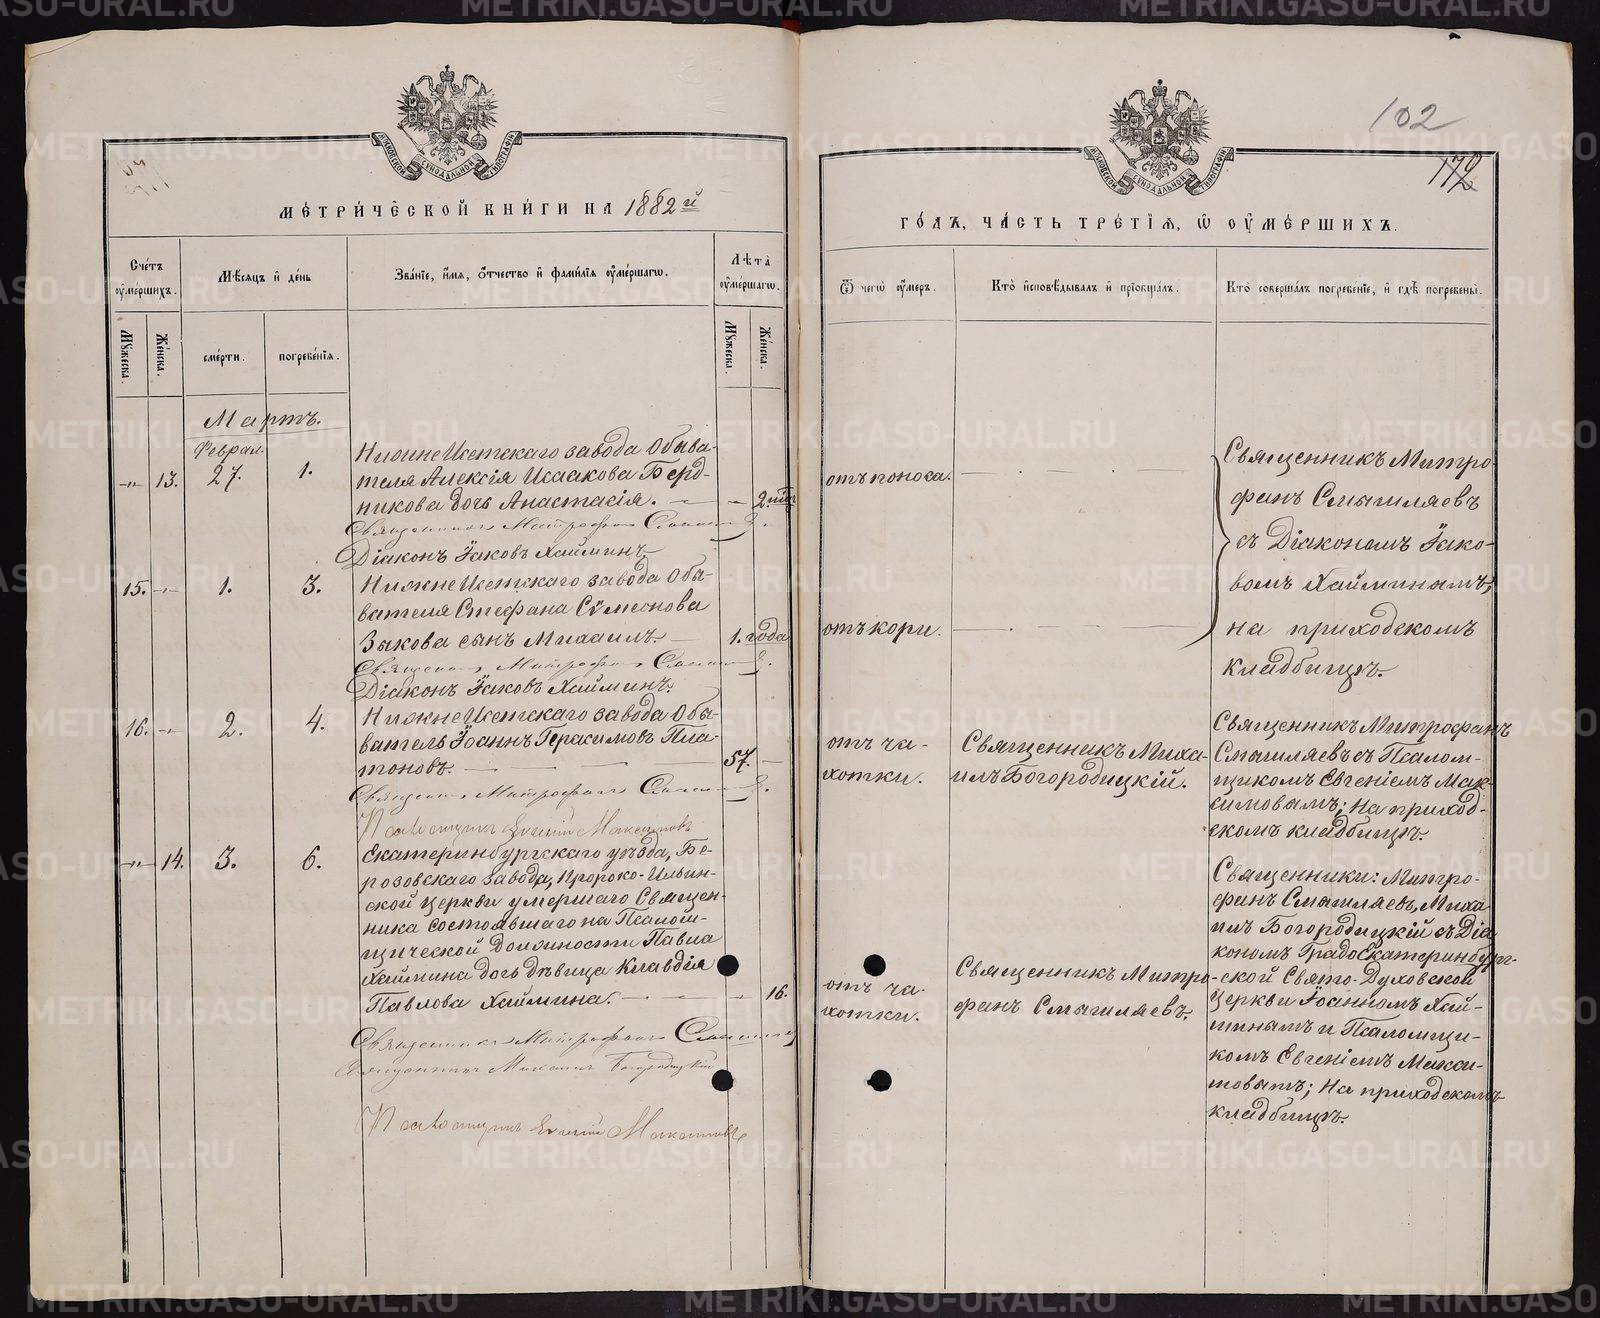 МЕТРИЧЕСКОЙ КНИГИ НА 1882й
Счетъ умершихъ.
Мѣсяцъ и день
Званіе, имя, отчество и фамилія умершагѡ.
Лѣта умершагѡ.
Мужеска.
Женска.
смерти.
погребенія.
Мужеска.
Женска.
Мартъ.
Феврал.
13.
27.
1.
НижнеИсетскаго завода Обыва-
теля Алексія Исаакова Берд-
никова дочь Анастасія.
2.
Священникъ Митрофанъ
Діаконъ Іаковъ Хайминъ
15.
1.
3.
НижнеИсетскаго завода Обы-
вателя Стефана Сѵмеонова
Зыкова сынъ Михаилъ.
1. года
Священникъ Митрофанъ
Діаконъ Іаковъ Хайминъ.
16.
2.
4.
НижнеИсетскаго завода Обы-
ватель Іоаннъ Герасимовъ Пла-
тоновъ.
57.
Священникъ Митрофанъ
Псаломщикъ Евгеній Максимовъ
14.
3.
6.
Екатеринбургскаго уѣзда, Бе-
розовскаго завода, Пророко-Ильин-
ской церкви умершаго Священ-
ника состоявшаго на Псалом-
щической должности Павла
Хаймина дочь дѣвица Клавдія
Павлова Хаймина.
16.
Священникъ Митрофанъ
Священникъ Михаилъ Богородицкій
Псаломщикъ Евгеній Максимовъ
МОСКОВСКОЙ СУНОДАЛЬНОЙ ТИПОГРАФІИ
102
172
ГОДЪ, ЧАСТЬ ТРЕТІЯ, Ѡ УМЕРШИХЪ.
Ѿ чегѡ умеръ.
Кто исповѣдывалъ и пріобщалъ.
Кто совершалъ погребеніе, и гдѣ погребены.
отъ поноса.
Священникъ Митро-
фанъ Смышляевъ
съ Діакономъ Іако-
вомъ Хайминымъ;
на приходскомъ
кладбищѣ.
отъ кори.
отъ ча-
хотки.
Священникъ Миха-
илъ Богородицкій.
Священникъ Митрофанъ
Смышляевъ съ Псалом-
щикомъ Евгеніемъ Мак-
симовымъ; на приход-
скомъ кладбищѣ.
отъ ча-
хотки.
Священникъ Митро-
фанъ Смышляевъ.
Священники: Митро-
фанъ Смышляевъ, Миха-
илъ Богородицкій съ Діа
кономъ ГрадоЕкатеринбург-
ской Свято-Духовской
церкви Іоанномъ Хай-
минымъ и Псаломщи-
комъ Евгеніемъ Макси-
мовымъ; на приходскомъ
кладбищѣ.
МОСКОВСКОЙ СУНОДАЛЬНОЙ ТИПОГРАФІИ
METRIKI.GASO-URAL.RU